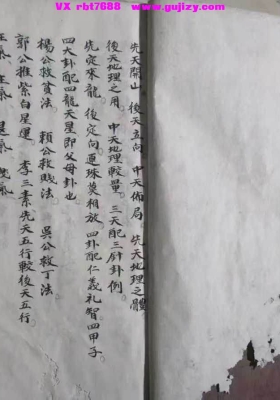 VX rbt7688  www.gujizy.com
先天開山 後天立向 中天佈局。先天地理之體
後天地理之用。中天地理較量。三天配三盤卦例。
先定來龍。後定向
四卦配仁義礼智四甲子
四大卦配四龍天星即父母卦也
楊公救貧法 賴公救賤法 吳公救丁法
郭公推紫白星運。李三素先天五行較後天五行